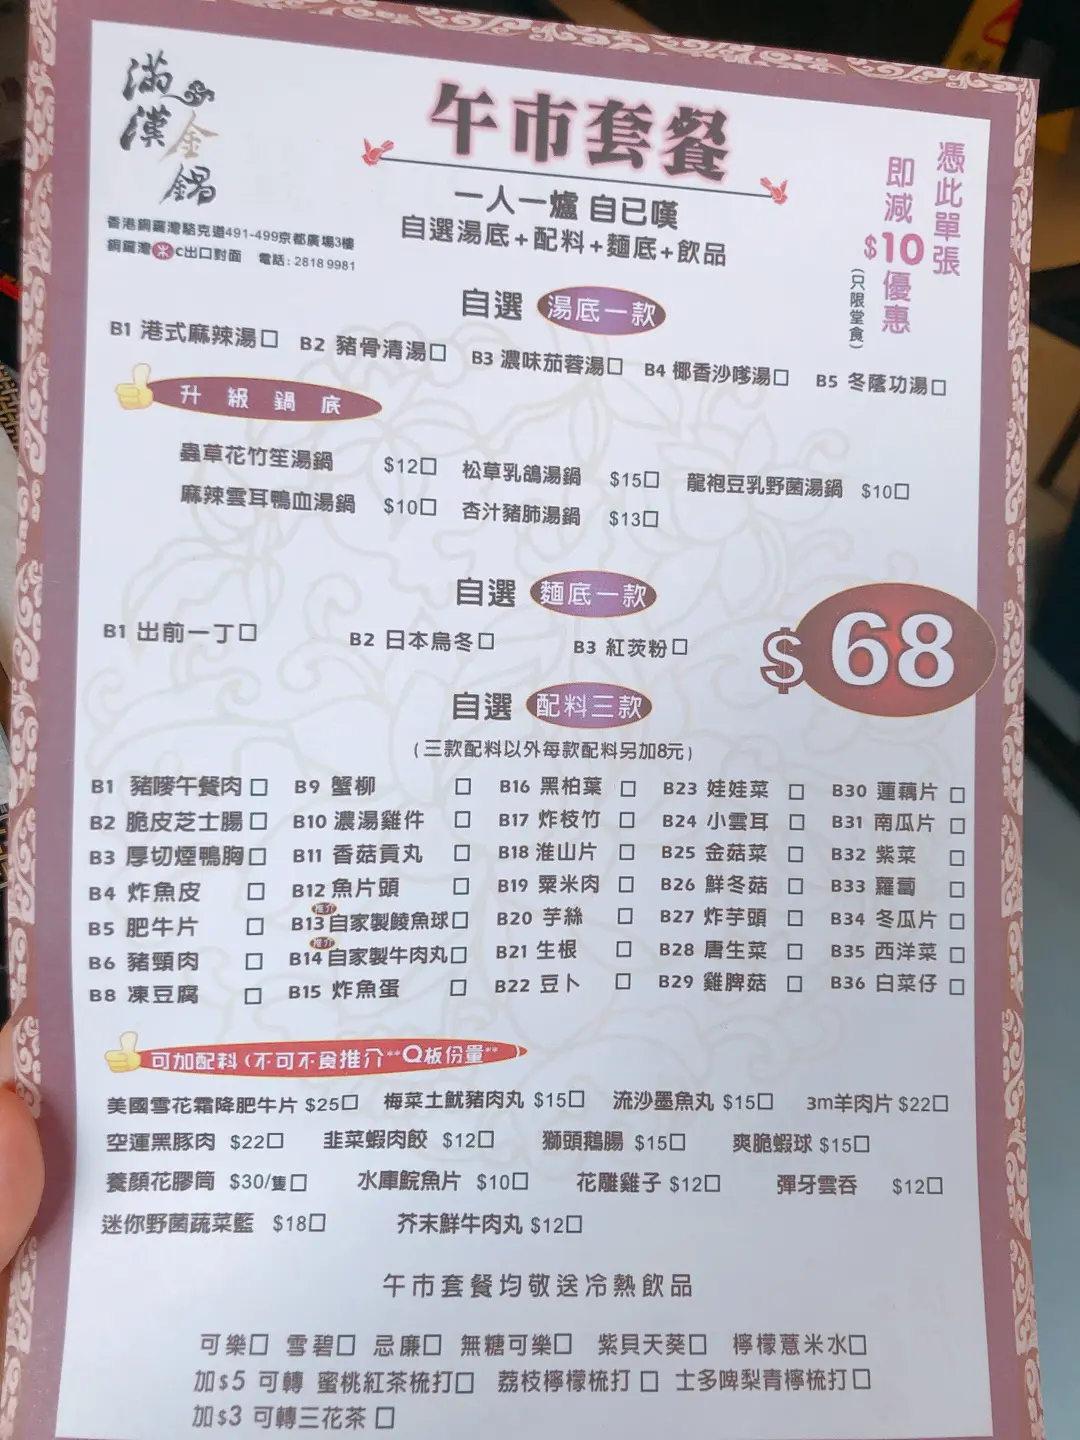 滿漢金鍋
香港銅鑼灣駱克道491-499京都廣場3樓
銅鑼灣 C出口對面 電話: 2818 9981
午市套餐
一人一爐 自己嘆
自選湯底+配料+麵底+飲品
憑此單張
即減$10優惠
(只限堂食)
自選 湯底一款
B1 港式麻辣湯□ B2 豬骨清湯□ B3 濃味茄蓉湯□ B4 椰香沙嗲湯□ B5 冬蔭功湯□
升級鍋底
蟲草花竹笙湯鍋 $12□ 松草乳鴿湯鍋 $15□ 龍袍豆乳野菌湯鍋 $10□
麻辣雲耳鴨血湯鍋 $10□ 杏汁豬肺湯鍋 $13□
自選 麵底一款
B1 出前一丁□ B2 日本烏冬□ B3 紅茨粉□
$68
自選 配料三款
(三款配料以外每款配料另加8元)
B1 豬嘜午餐肉 □ B9 蟹柳 □ B16 黑柏葉 □ B23 娃娃菜 □ B30 蓮藕片 □
B2 脆皮芝士腸 □ B10 濃湯雞件 □ B17 炸枝竹 □ B24 小雲耳 □ B31 南瓜片 □
B3 厚切煙鴨胸 □ B11 香菇貢丸 □ B18 淮山片 □ B25 金菇菜 □ B32 紫菜 □
B4 炸魚皮 □ B12 魚片頭 □ B19 粟米肉 □ B26 鮮冬菇 □ B33 蘿蔔 □
B5 肥牛片 □ B13 推介 自家製鯪魚球□ B20 芋絲 □ B27 炸芋頭 □ B34 冬瓜片 □
B6 豬頸肉 □ B14 推介 自家製牛肉丸□ B21 生根 □ B28 唐生菜 □ B35 西洋菜 □
B8 凍豆腐 □ B15 炸魚蛋 □ B22 豆卜 □ B29 雞脾菇 □ B36 白菜仔 □
可加配料(不可不食推介**Q板份量**)
美國雪花霜降肥牛片 $25□ 梅菜土魷豬肉丸 $15□ 流沙墨魚丸 $15□ 3m羊肉片 $22□
空運黑豚肉 $22□ 韭菜蝦肉餃 $12□ 獅頭鵝腸 $15□ 爽脆蝦球 $15□
養顏花膠筒 $30/隻□ 水庫鯇魚片 $10□ 花雕雞子 $12□ 彈牙雲吞 $12□
迷你野菌蔬菜籃 $18□ 芥末鮮牛肉丸 $12□
午市套餐均敬送冷熱飲品
可樂□ 雪碧□ 忌廉□ 無糖可樂□ 紫貝天葵□ 檸檬薏米水□
加$5 可轉 蜜桃紅茶梳打□ 荔枝檸檬梳打□ 士多啤梨青檸梳打□
加$3 可轉三花茶 □